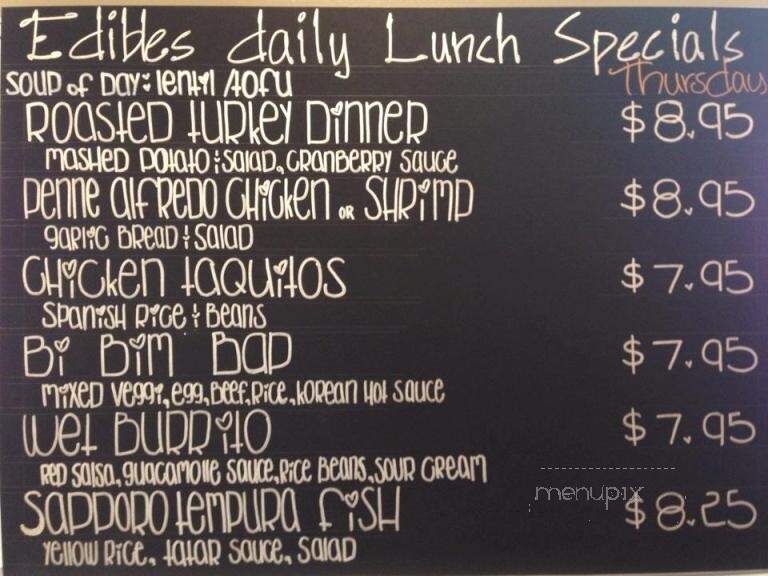 Edibles daily Lunch Specials
Thursday
SOUP of DAY: lentil /tofu
ROASTED tURKEY DiNNER $8.95
MASHED POtAtO & SALAD, CRANBERRY SAUCE
PENNE AlfREDO CHiCKEN OR SHRiMP $8.95
gARliC BREAD & SALAD
CHiCKEN tAQUitOS $7.95
SPANiSH RiCE & BEANS
Bi BiM BAP $7.95
MiXED VEggi, Egg, BEEF, RiCE, KOREAN HOt SAUCE
WEt BURRitO $7.95
RED SALSA, gUACAMOllE SAUCE, RiCE BEANS, SOUR CREAM
menupix
SAPPORO tEMPURA FiSH $8.25
YEllOW RiCE, tAtAR SAUCE, SALAD